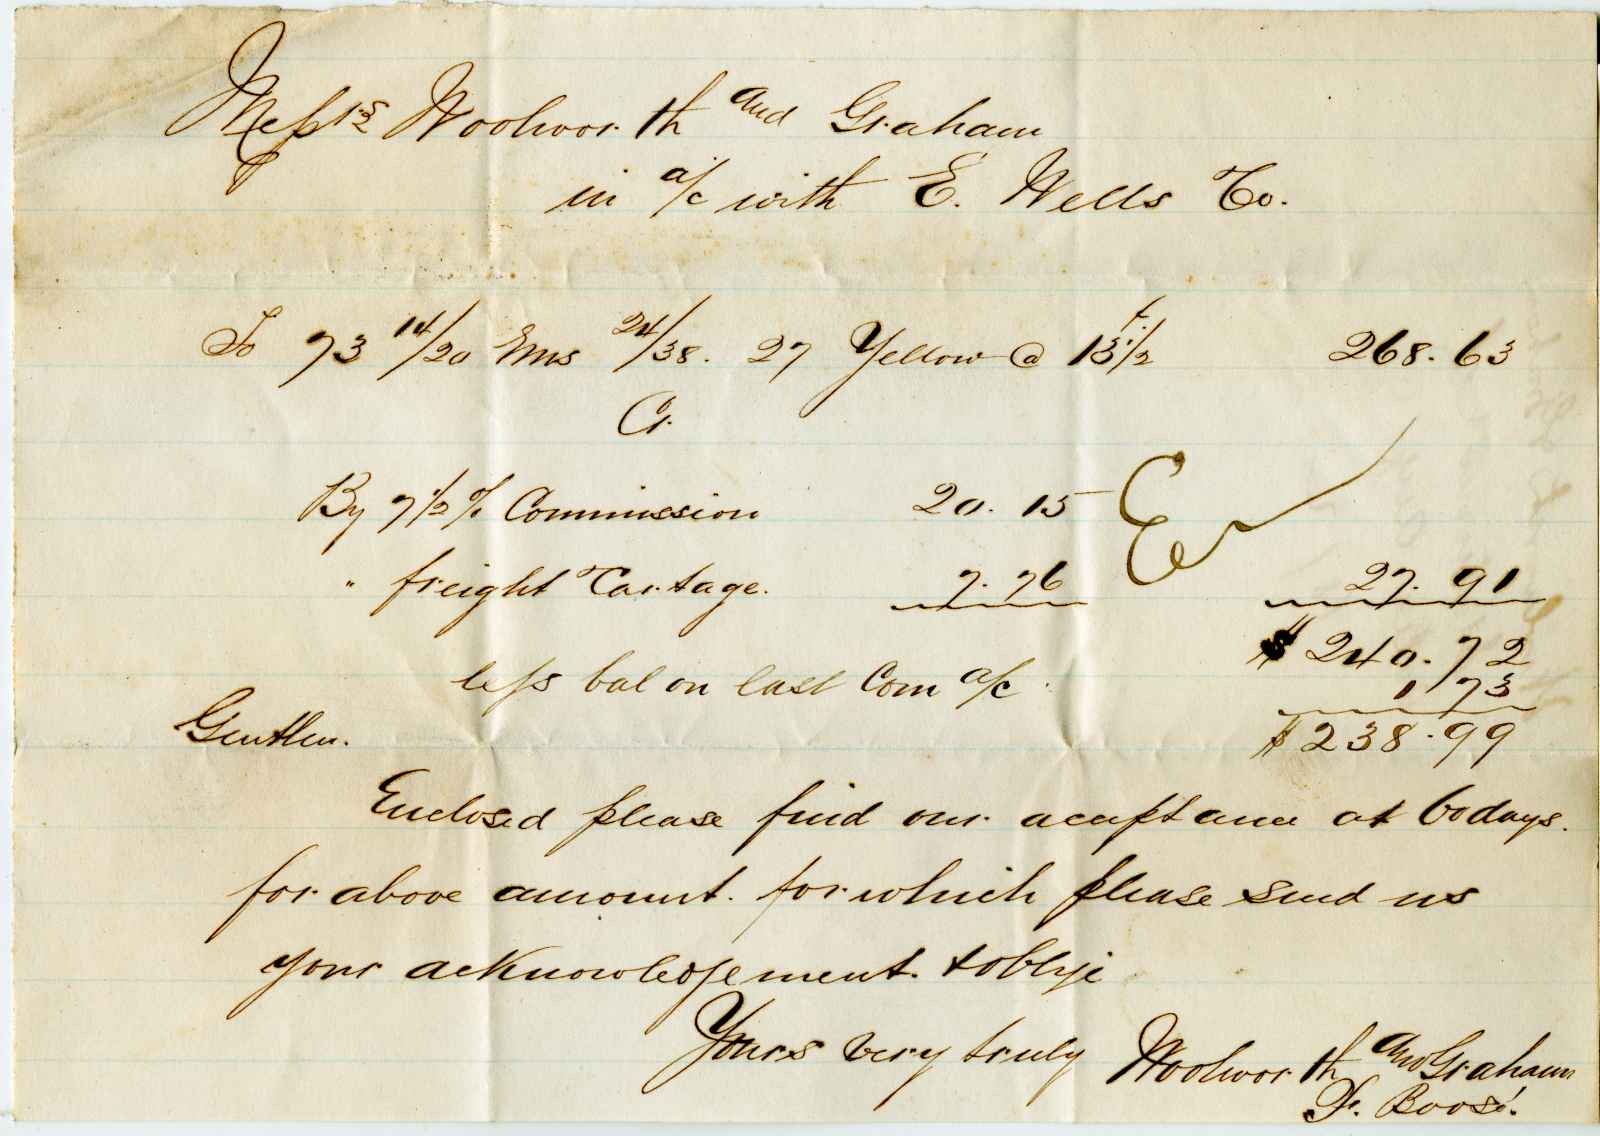 Messrs Woolworth and Graham
in a/c with E. Wells Co.
To 73 14/20 Rms 24/38. 27 Yellow @ 13 1/2 268.63
Cr.
By 7 1/2 % Commission 20.15
" freight Cartage. 7.76 27.91
$240.72
less bal on last Com a/c 1.73
Gentlen. $238.99
Enclosed please find our acceptance at 60 days.
for above amount. for which please send us
your acknowledgement. & oblige
Yours very truly Woolworth and Graham